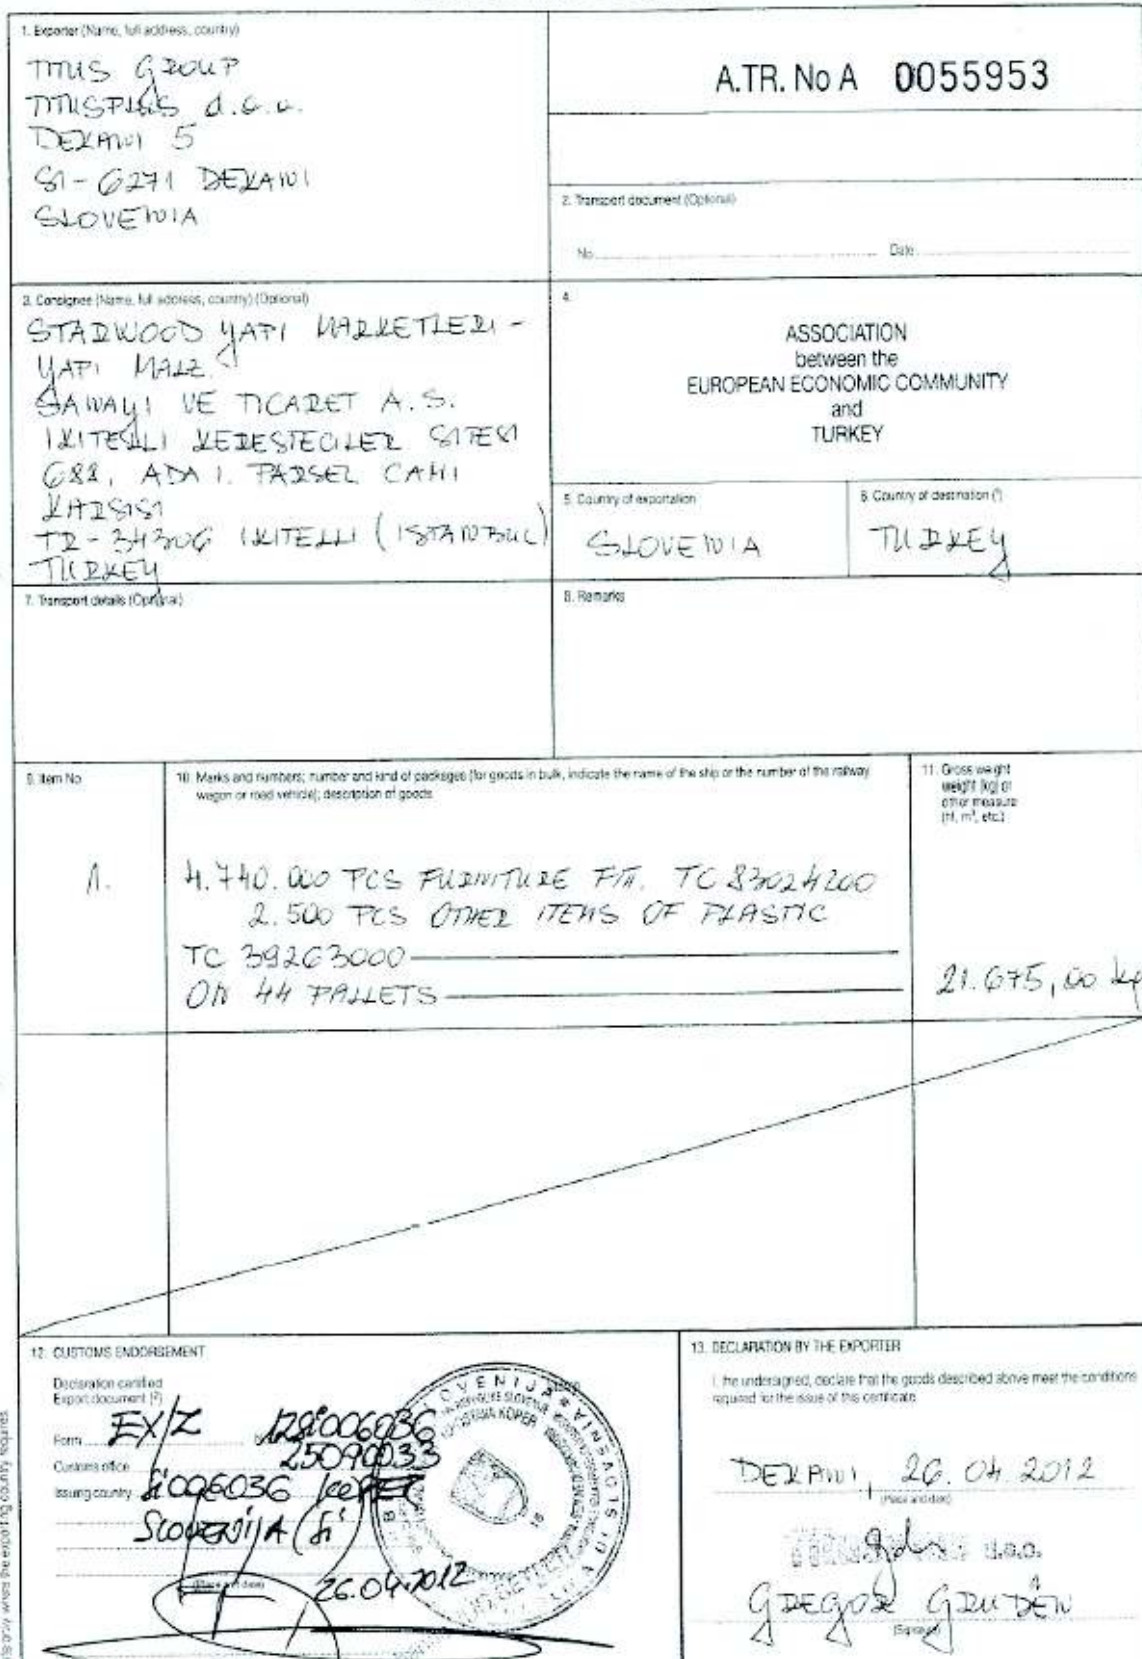 1. Exporter (Name, full address, country)
TITUS GROUP
TITUSPLUS d.o.o.
DEKANI 5
SI-6271 DEKANI
SLOVENIA
A.TR. No A 0055953
2. Transport document (Optional)
No Date
3. Consignee (Name, full address, country) (Optional)
STARWOOD YAPI MARKETLERI -
YAPI MALZ.
SANAYI VE TICARET A.S.
IKITELLI KERESTECILER SITESI
688, ADA 1. PARSEL CAMI
KARSISI
TR-34306 IKITELLI (ISTANBUL)
TURKEY
4.
ASSOCIATION
between the
EUROPEAN ECONOMIC COMMUNITY
and
TURKEY
5. Country of exportation
SLOVENIA
6. Country of destination (1)
TURKEY
7. Transport details (Optional)
8. Remarks
9. Item No
10. Marks and numbers; number and kind of packages (for goods in bulk, indicate the name of the ship or the number of the railway
wagon or road vehicle); description of goods
11. Gross weight
weight (kg) or
other measure
(hl, m³, etc.)
1.
4.740.000 PCS FURNITURE FITT. TC 83024200
2.500 PCS OTHER ITEMS OF PLASTIC
TC 39263000
ON 44 PALLETS
21.675,00 kg
12. CUSTOMS ENDORSEMENT
Declaration certified
Export document (2)
Form EX/Z 12SI006036
25090033
Customs office
Issuing country SI006036 KOPER
SLOVENIJA (SI)
(Place and date)
26.04.2012
13. DECLARATION BY THE EXPORTER
I, the undersigned, declare that the goods described above meet the conditions
required for the issue of this certificate
DEKANI, 26.04.2012
(Place and date)
d.o.o.
GREGOR GRUDEN
(Signature)
where the exporting country requires